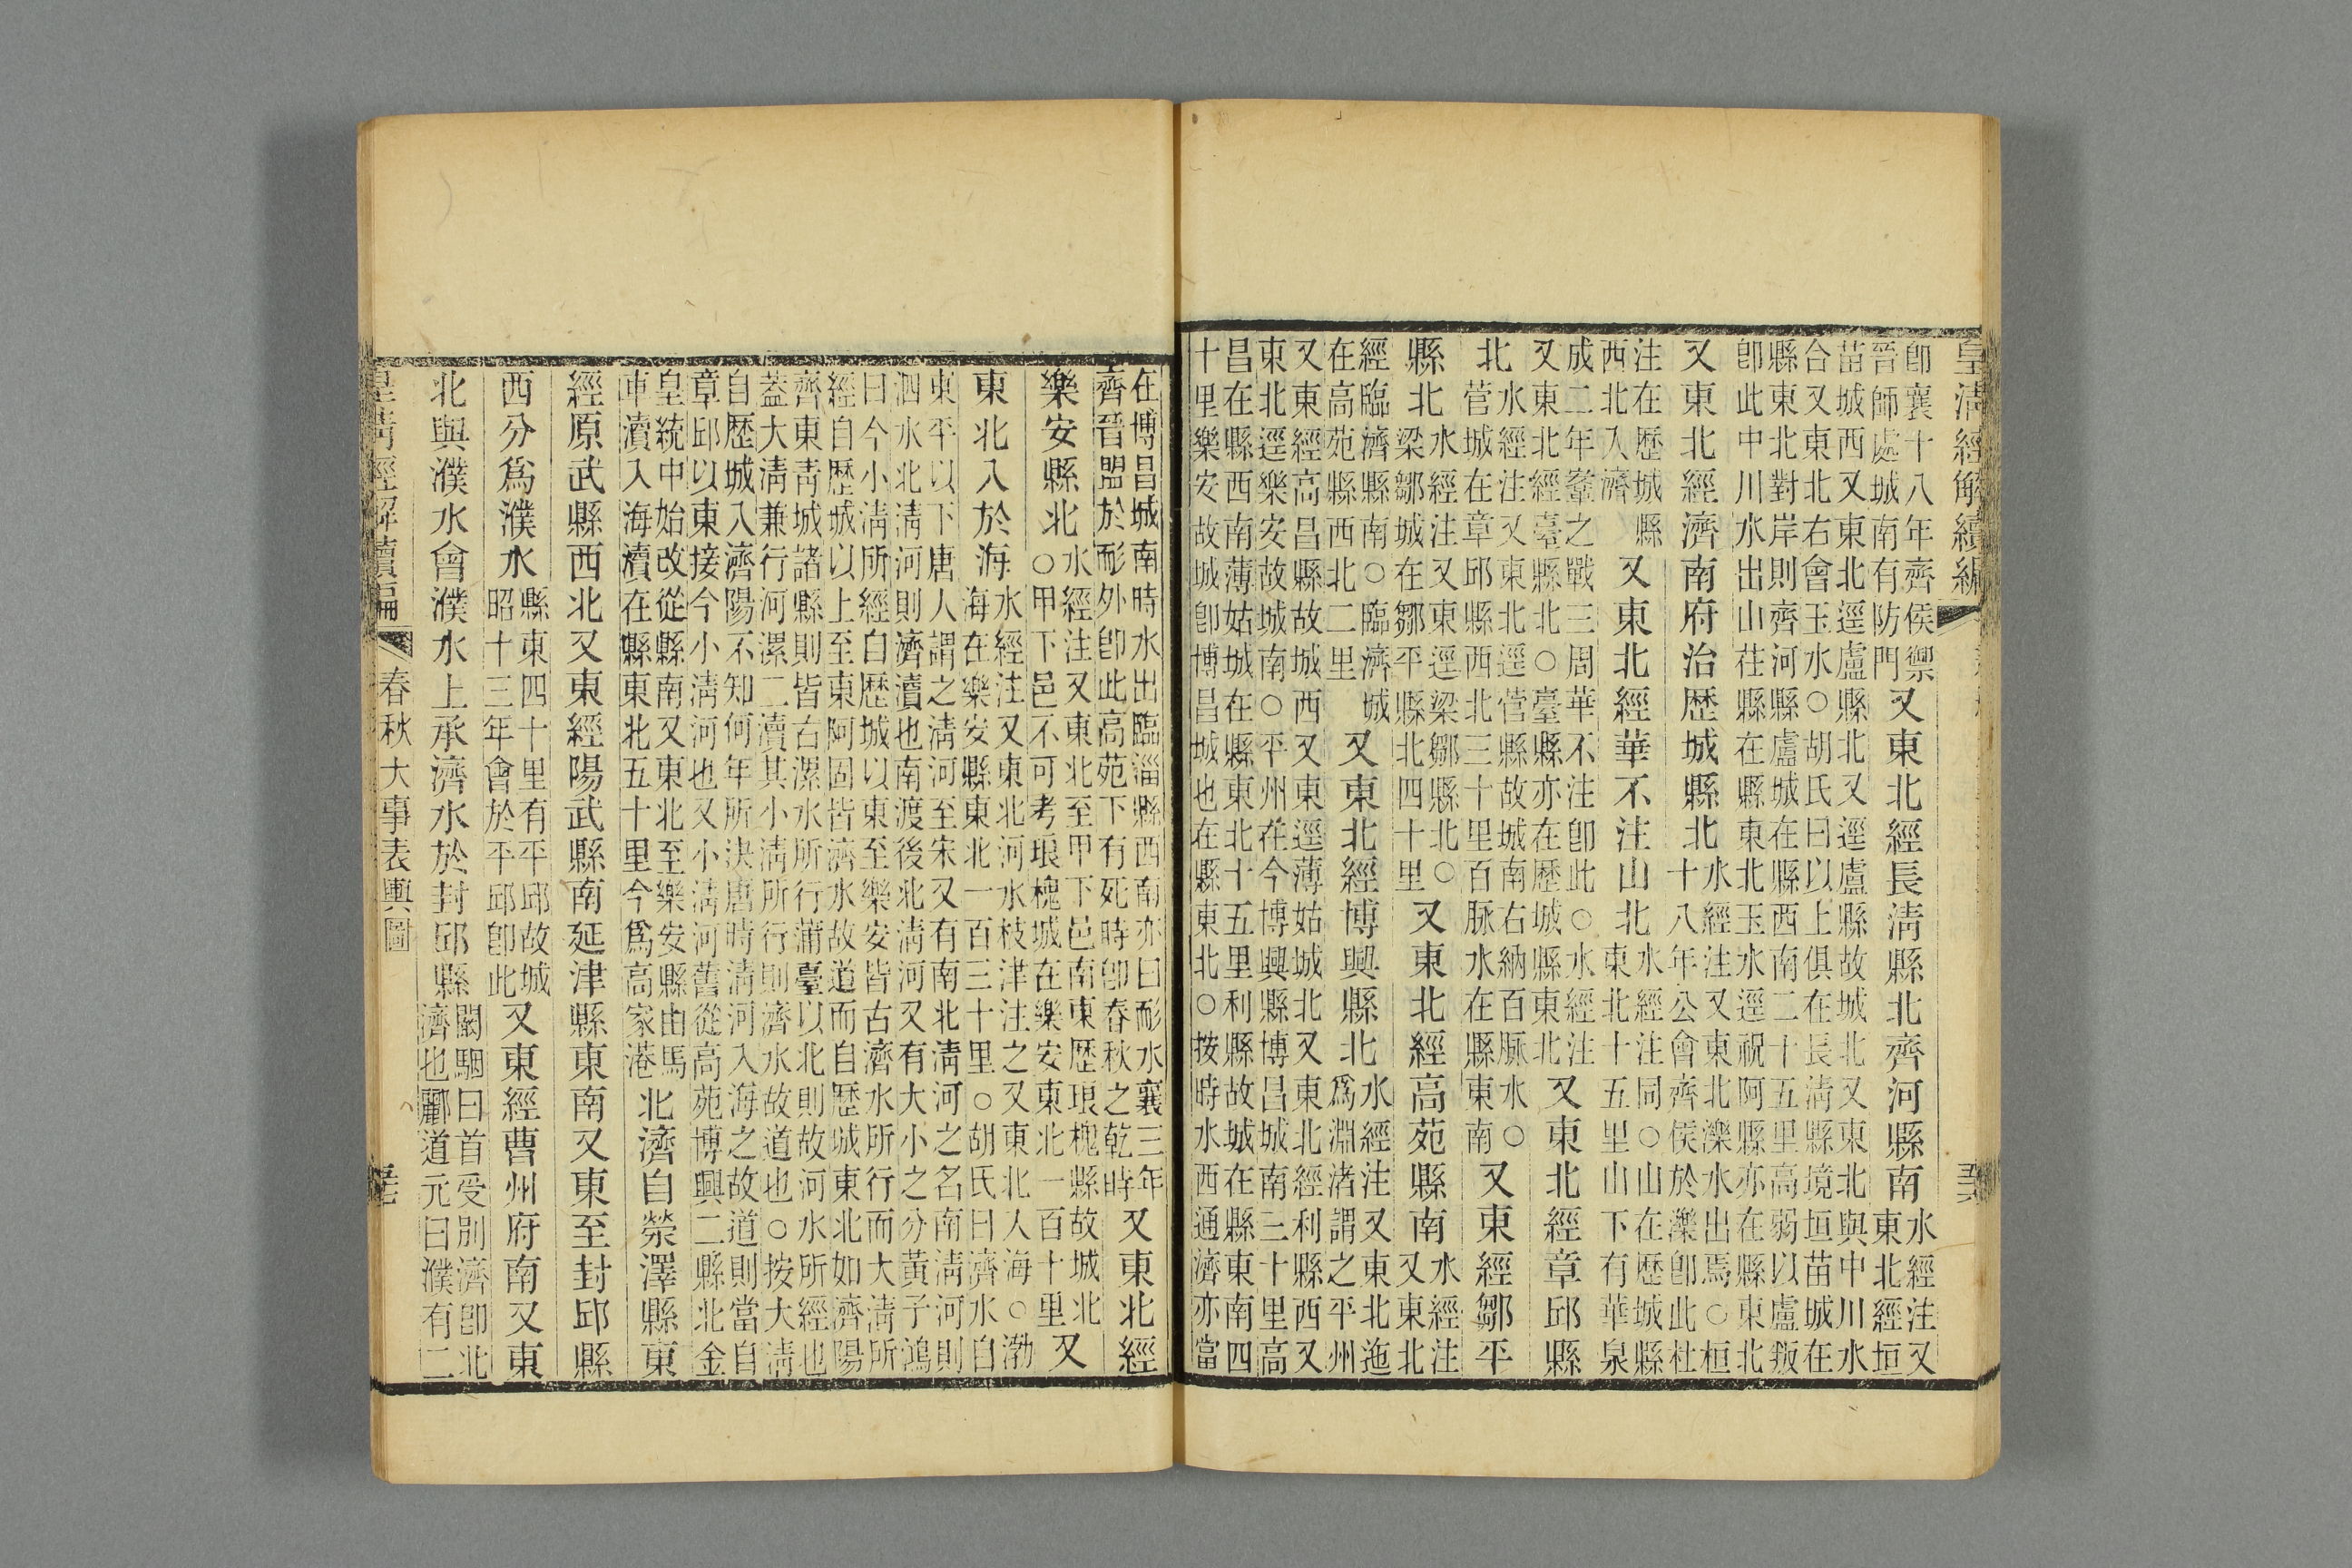 皇清經解續編
卽襄十八年齊侯禦
晉師處城南有防門
又東北經長清縣北齊河縣南
水經注又
東北經垣
苗城西又東北逕盧縣北又逕盧縣故城北又東北與中川水
合又東北右會玉水○胡氏曰以上俱在長清縣境垣苗城在
縣東北對岸則齊河縣盧城在縣西南二十五里高弱以盧叛
卽此中川水出山茌縣在縣東北玉水逕祝阿縣亦在縣東北
又東北經濟南府治歷城縣北
水經注又東北濼水出焉○桓
十八年公會齊侯於濼卽此杜
注在歷城縣
西北入濟
又東北經華不注山北
水經注同○山在歷城縣
東北十五里山下有華泉
成二年鞌之戰三周華不注卽此○水經注
又東北經臺縣北○臺縣亦在歷城縣東北
又東北經章邱縣
北
水經注又東北逕菅縣故城南右納百脉水○
菅城在章邱縣西北三十里百脉水在縣東南
又東經鄒平
縣北
水經注又東逕梁鄒縣北○
梁鄒城在鄒平縣北四十里
又東北經高苑縣南
水經注
又東北
經臨濟縣南○臨濟城
在高苑縣西北二里
又東北經博興縣北
水經注又東北迤
爲淵渚謂之平州
又東經高昌縣故城西又東逕薄姑城北又東北經利縣西又
東北逕樂安故城南○平州在今博興縣博昌城南三十里高
昌在縣西南薄姑城在縣東北十五里利縣故城在縣東南四
十里樂安故城卽博昌城也在縣東北○按時水西通濟亦當
在博昌城南時水出臨淄縣西南亦曰耏水襄三年
齊晉盟於耏外卽此高苑下有死時卽春秋之乾時
又東北經
樂安縣北
水經注又東北至甲下邑南東歷琅槐縣故城北
○甲下邑不可考琅槐城在樂安東北一百十里
又
東北入於海
水經注又東北河水枝津注之又東北入海○渤
海在樂安縣東北一百三十里○胡氏曰濟水自
東平以下唐人謂之淸河至宋又有南北淸河之名南淸河則
泗水北淸河則濟瀆也南渡後北淸河又有大小之分黃子鴻
曰今小淸所經自歷城以東至樂安皆古濟水所行而大淸所
經自歷城以上至東阿固皆濟水故道而自歷城東北如濟陽
齊東靑城諸縣則皆古漯水所行蒲臺以北則故河水所經也
蓋大淸兼行河漯二瀆其小淸所行則濟水故道也○按大淸
自歷城入濟陽不知何年所決唐時淸河入海之故道則當自
章邱以東接今小淸河也又小淸河舊從高苑博興二縣北金
皇統中始改從縣南又東北至樂安縣由馬
車瀆入海瀆在縣東北五十里今爲高家港
北濟自滎澤縣東
經原武縣西北又東經陽武縣南延津縣東南又東至封邱縣
西分爲濮水
縣東四十里有平邱故城
昭十三年會於平邱卽此
又東經曹州府南又東
北與濮水會濮水上承濟水於封邱縣
闞駰曰首受別濟卽北
濟也酈道元曰濮有二
皇淸經解續編
春秋大事表輿圖